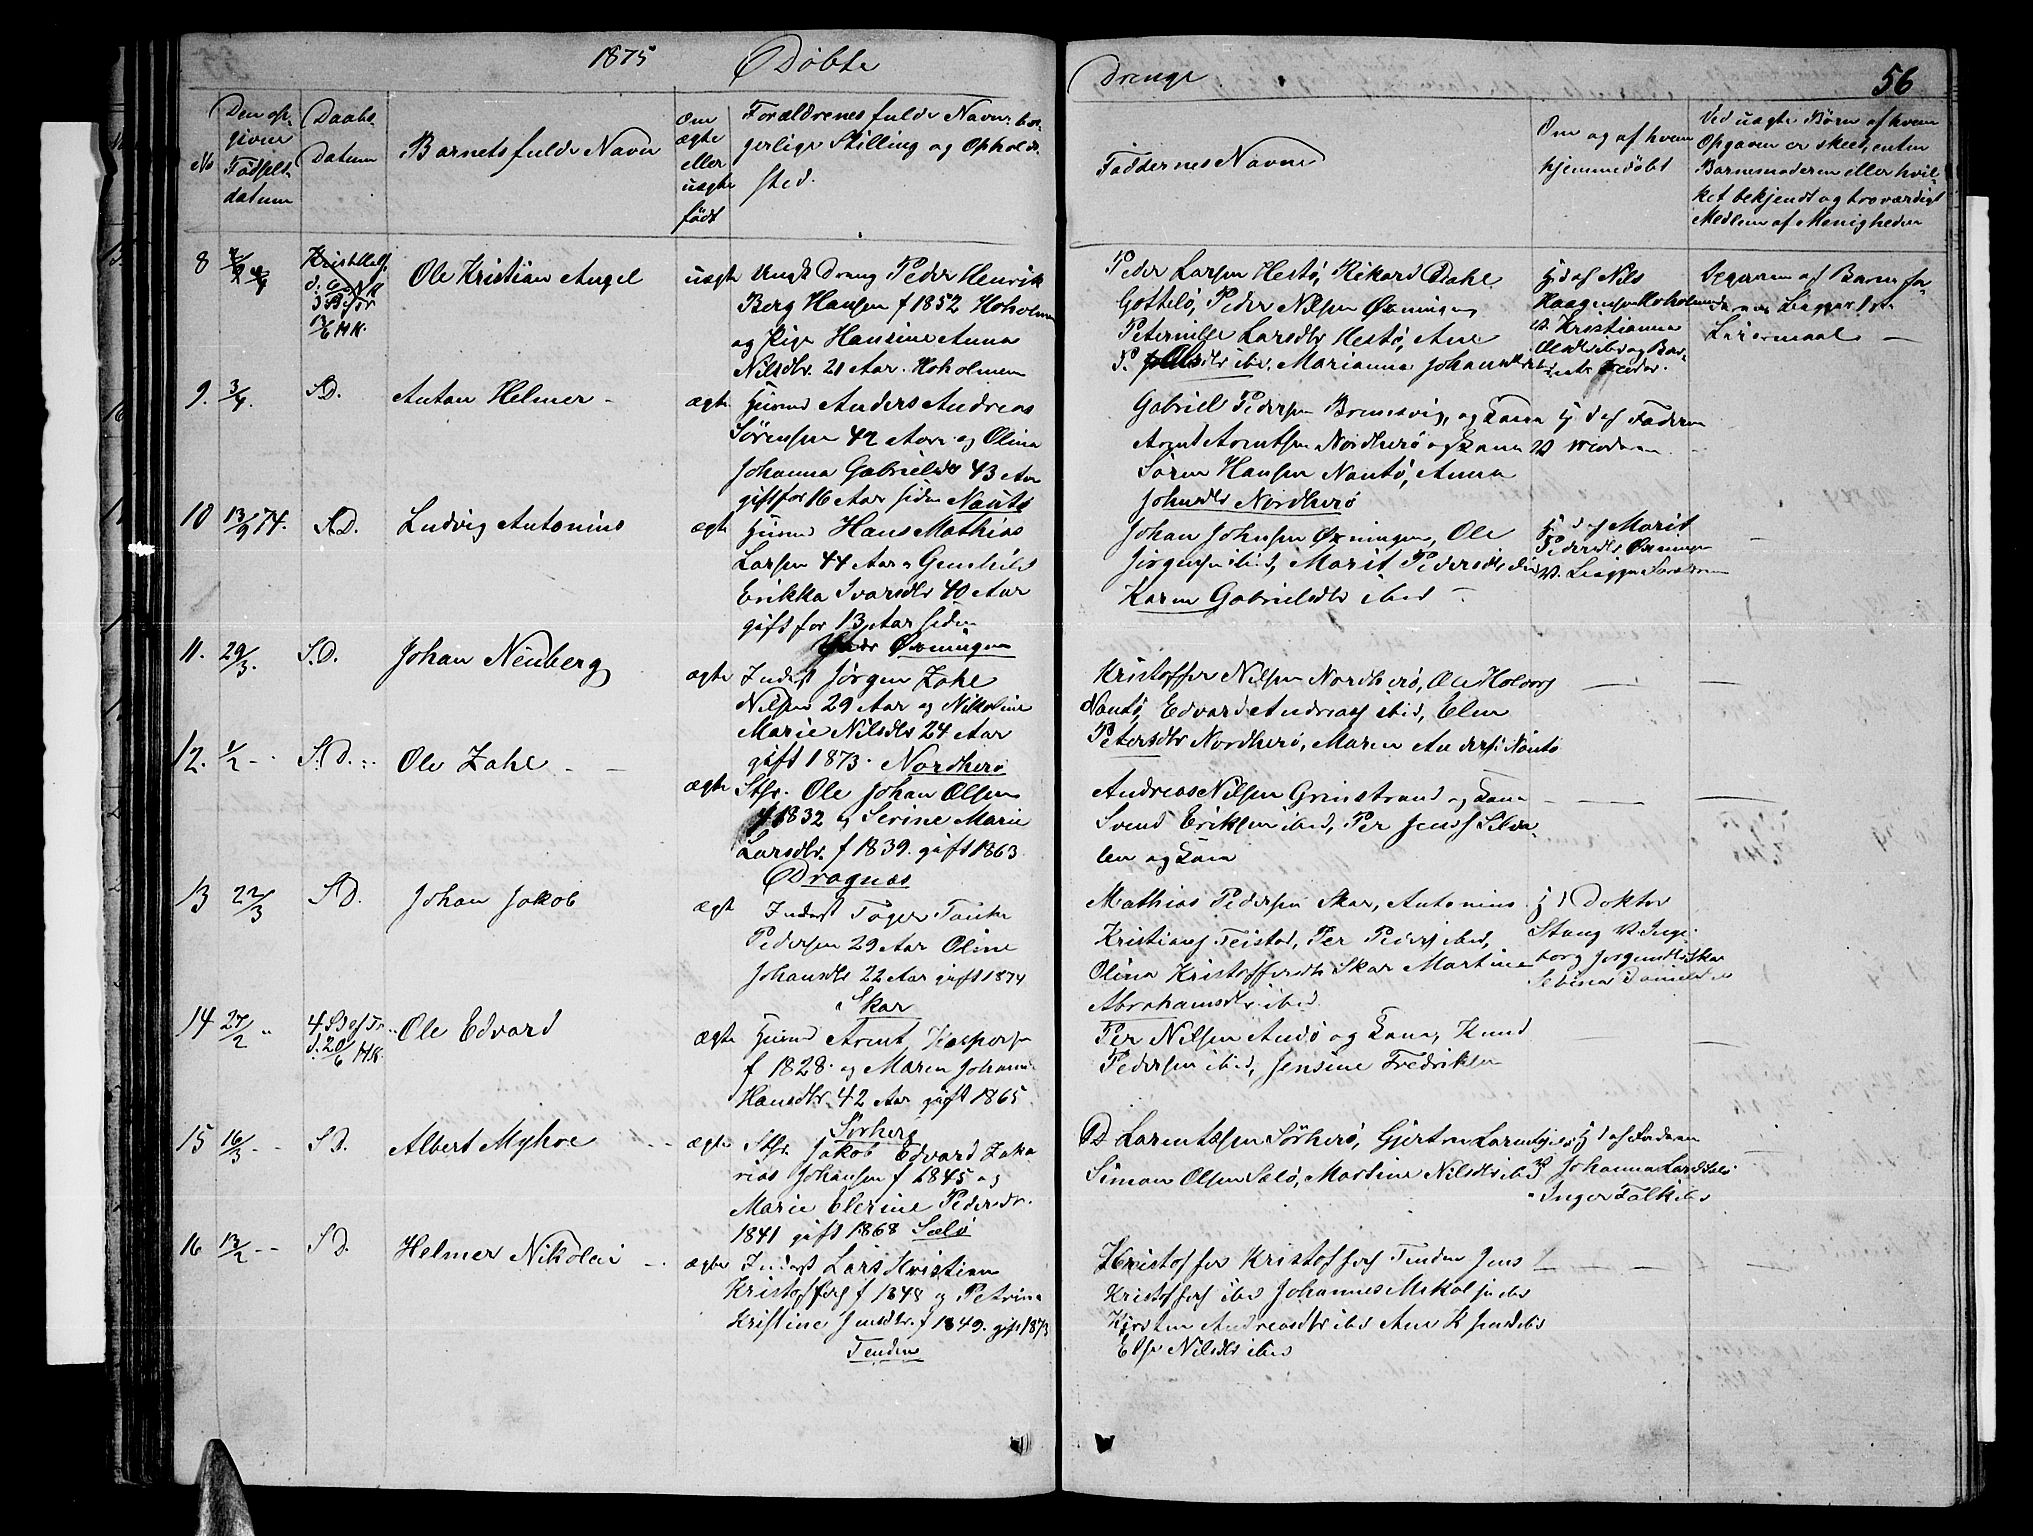 1875 Døbte
Drenge 56
No
Den op-
given
Fødsels-
datum
Daabs-
Datum
Barnets fulde Navn
Om
ægte
eller
uægte
født
Forældrenes fulde Navn, bor-
gerlige Stilling og Opholds-
sted.
Faddernes Navne
Om og af hvem
hjemmedøbt
Ved uægte Børn af hvem
Opgaven er skeet, enten
Barnemoderen eller hvil-
ket bekjendt og troværdigt
Medlem af Menigheden
8
Ole Kristian Angel
uægte
Ungk Dreng Peder Henrik
Berg Hansen f 1852 Hoholmen
og Pige Hansine Anna
Nilsdtr. 21 Aar. Hoholmen
Peder Larsen Hestø, Rikard Dahl
Peder Nilsen Øxningen
Peternille Larsdtr Hestø, Ane
ibd, Marianna
Hj d af Nils
Haagensen Hoholmen
V. Kristianna
9. 3/4. S.D. Anton Helmer -
ægte
Husmd Anders Andreas
Sørensen 42 Aar og Olina
Johanna Gabrielsdtr 43 Aar
gift for 16 Aar siden Nautø
Gabriel Pedersen Bremsvig, og Kona
Arnt Arntsen Nordherø og Kona
Søren Hansen Nautø, Anna
Johnsdtr Nordherø
Hj. d af Faderen
V. Moderen
10 13/9 74. S.D. Ludvig Antonius
ægte
Husmd Hans Mathias
Larsen 44 Aar og Gunhild
Erikka Ivarsdtr 40 Aar
gift for 13 Aar siden
Øxningen
Johan Johnsen Øxningen, Ole
Jørgensen ibid, Marit Pedersdtr ibid
Karen Gabrielsdtr ibid -
Hj d af Marit
Pedersdtr Øxningen
V. Begge Forældrene
11. 29/3. S.D. Johan Neuberg
ægte
Inderst Jørgen Zahl
Nilsen 29 Aar og Nikoline
Marie Nilsdtr 24 Aar
gift 1873. Nordherø
Kristoffer Nilsen Nordherø, Ole Holvors
Nautø, Edvard Andreass ibid, Elen
Petersdtr Nordherø, Maren Anders. Nautø
12. 1/2 - S.D. Ole Zahl
ægte
Stfr. Ole Johan Olsen
f 1832 og Serine Marie
Larsdtr. f 1839. gift 1863
Dragnæs
Andreas Nilsen Grinstrand og Kona
Svend Eriksen ibid, Per Jenss Silda-
len og Kona
13 22/3 S.D. Johan Jakob
ægte
Inderst Tøger
Pedersen 29 Aar Oline
Johansdtr 22 Aar gift 1874
Skar
Mathias Pedersen Skar, Antonius
Kristians Teistad, Per Peders ibid,
Olina Kristoffersdtr Skar Martine
Abrahamsdtr ibid
Hj d Doktor
Stang V. Inge-
borg Jørgensdtr Skar
14 27/2 4. S. ef Tr.
d. 20/6 HK.
Ole Edvard
ægte
Husmd Arnt Kaspers
f 1828. og Maren Johanna
Hansdtr. 42 Aar gift 1865.
Sørherø
Per Nilsen Andø og Kona, Knud
Pedersen ibid, Jensine Fredriksen
15 16/3 - S.D. Albert Myhre
ægte
Stfr. Jakob Edvard Zaka-
rias Johansen f 1845 og
Marie Elerine Pedersdtr.
1841 gift 1868 Sælø
D Larentzsen Sørherø, Gjertru Larents
Simon Olsen Sælø, Martine Nilsdtr ibid
Hj d af Faderen
V Johanna Larsdtr
Inger Falk ibid
16 13/2 - S.D. Helmer Nikolai -
ægte
Inderst Lars Kristian
Kristoffers f 1848 og Petrina
Kristine Jensdtr. f 1849. gift 1873
Tenden
Kristoffer Kristoffers Tenden Jens
Kristoffers ibid Johannes
Kirsten Andreasdtr ibid Ane K Jensd ibid
Else Nilsdtr ibid